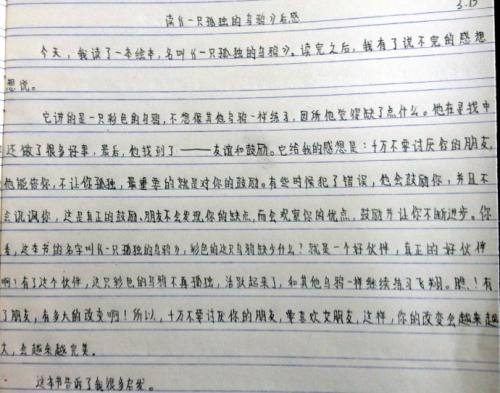 读《一只孤独的乌鸦》后感
3.15
今天,我读了一本绘本,名叫《一只孤独的乌鸦》。读完之后,我有了说不完的感想
想说。
它讲的是一只彩色的乌鸦,不想像其他乌鸦一样练习,因所他觉得缺了点什么。他在寻找中
还做了很多好事,最后,他找到了——友谊和鼓励。它给我的感想是:千万不要讨厌你的朋友,
他能陪你,不让你孤独,最重要的就是对你的鼓励。有些时候犯了错误,他会鼓励你,并且不
会讽讽你,这是真正的鼓励。朋友不会发现你的缺点,而会观察你的优点,鼓励并让你不断进步。你
看,这本书的名字叫《一只孤独的乌鸦》,彩色的这只乌鸦缺少什么?就是一个好伙伴,真正的好伙伴
啊!有了这个伙伴,这只彩色的乌鸦不再孤独,活跃起来了,和其他乌鸦一样继续练习飞翔。瞧!有
了朋友,有多大的改变啊!所以,千万不要讨厌你的朋友,要喜欢女朋友,这样,你的改变会越来越
大,会越来越完美。
这本书告诉了我很多启发。